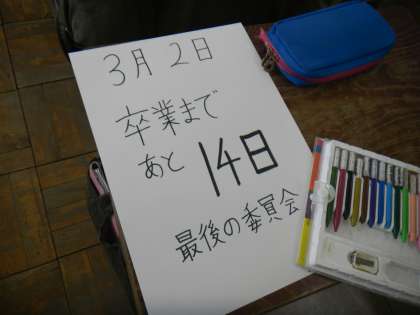 3月2日
卒業まで
あと 14日
最後の委員会